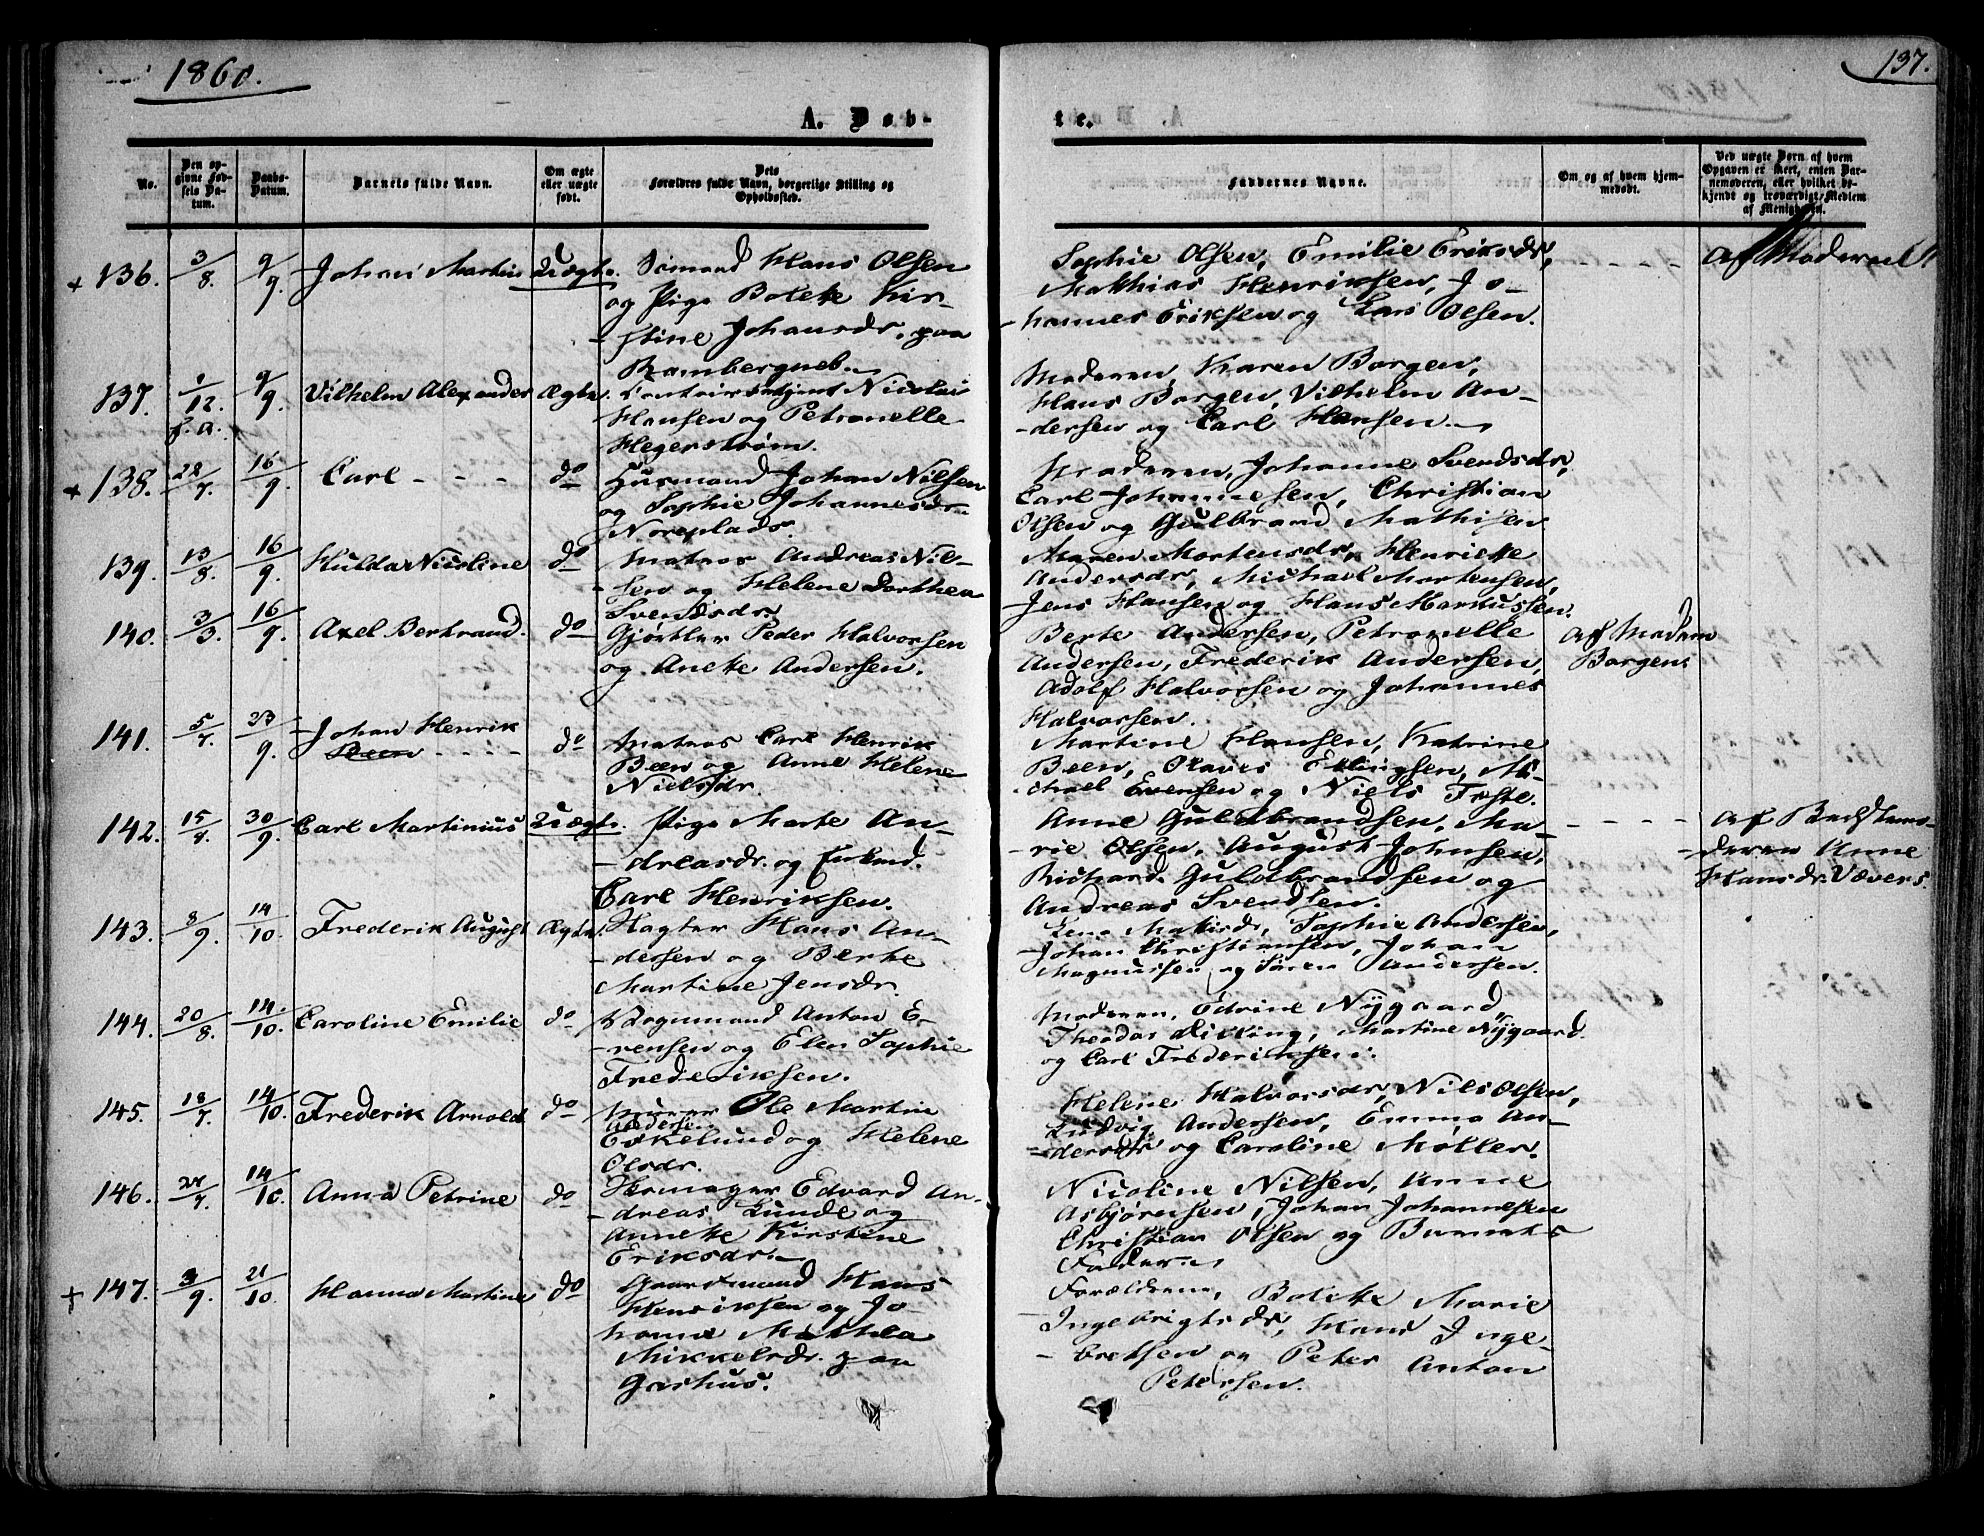 1860.
137.
A. Døb-
te.
No.
Den op-
givne Fød-
sels Da-
tum.
Daabs-
Datum.
Barnets fulde Navn.
Om ægte
eller uægte
født.
Dets
Forældres fulde Navn, borgerlige Stilling og
Opholdssted.
Faddernes Navne.
Om og af hvem hjem-
medøbt.
Ved uægte Børn af hvem
Opgaven er skeet, enten Bar-
nemoderen, eller hvilket be-
kjendt og troværdigt Medlem
af Menigheden.
+ 136. 3/8. 9/9. Johan Martin Uægte. Sømand Hans Olsen
og Pige Bolette Kir-
stine Johansdr. paa
Rambergneb.
Sophie Olsen, Emilie Eriksdr,
Mathias Henriksen, Jo-
hannes Eriksen og Lars Olsen.
Af Moderen
137. 1/12. f. a. 9/9. Vilhelm Alexander Ægte. Nicolai
Hansen og Petronelle
Hegerstrøm.
Moderen, Karen Borgen,
Hans Borgen, Vilhelm An-
dersen og Carl Hansen.
+ 138. 28/7. 16/9. Carl - - - do Huusmand Johan Nilsen
og Sophie Johannesdr.
Noreplads.
Moderen, Johanne Svendsdr,
Carl Johannesen, Christian
Olsen og Gulbrand Mathisen
139. 13/8. 16/9. Hulda Nicoline do Matros Andreas Nil-
sen og Helene Dorthea
Svendsdr
Maren Mortensdr, Henriette
Andersdr, Michael Mortensen,
Jens Hansen og Hans Markussen.
140. 3/3. 16/9. Axel Bertrand. do Gjørtler Peder Halvorsen
og Anette Andersen.
Berte Andersen, Petronelle
Andersen, Frederik Andersen,
Adolf Halvorsen og Johannes
Halvorsen.
Af Madam
Borgen
141. 5/7. 23/9. Johan Henrik
Been - - - do Matros Carl Henrik
Been og Anne Helene
Nielsdr.
Martine Hansen, Katrine
Been, Olaves Ellingsen, Mi-
chael Evensen og Niels Foste.
142. 15/4. 30/9. Carl Martinius Uægte. Pige Marte An-
dreasdr. og Enkemd.
Carl Henriksen.
Anne Guldbrandsen, Ma-
rie Olsen, August Johnsen,
Richard Guldbrandsen og
Andreas Svendsen.
Af
deren Anne
Hansdr. Vævers.
143. 8/9. 14/10. Frederik August Ægte. Hans An-
dersen og Berte
Martine Jensdr.
Lene Matisdr, Sophie Andersen,
Johan Christiansen, Johan
Magnussen og Søren Andersen.
144. 20/8. 14/10. Caroline Emilie do Vognmand Anton E-
vensen og Elen Sophie
Frederiksen.
Moderen, Edvine Nygaard
Theodor Kikking, Martine Nygaard
og Carl Frederiksen.
145. 18/7. 14/10. Frederik Arnold do Murer Ole Martin
Andersen
Eekelund og Helene
Olsdr.
Helene Halvorsdr, Nils Olsen,
Ludvig Andersen, Emma An-
dersdr og Caroline Møller.
146. 24/7. 14/10. Anna Petrine do Edvard An-
dreas Lunde og
Annette Kirstine
Eriksdr.
Nicoline Nilsen, Anne
Asbjørnsen, Johan Johannesen
Christian Olsen og Barnets
Fader.
+ 147. 3/9. 21/10. Hanna Martine do Gaardmand Hans
Henriksen og Jo-
hanne Mathea
Mikkelsdr. paa
Gashus.
Forældrene, Bolette Marie
Ingebrigtsdr, Hans Inge-
bretsen og Peter Anton
Petersen.